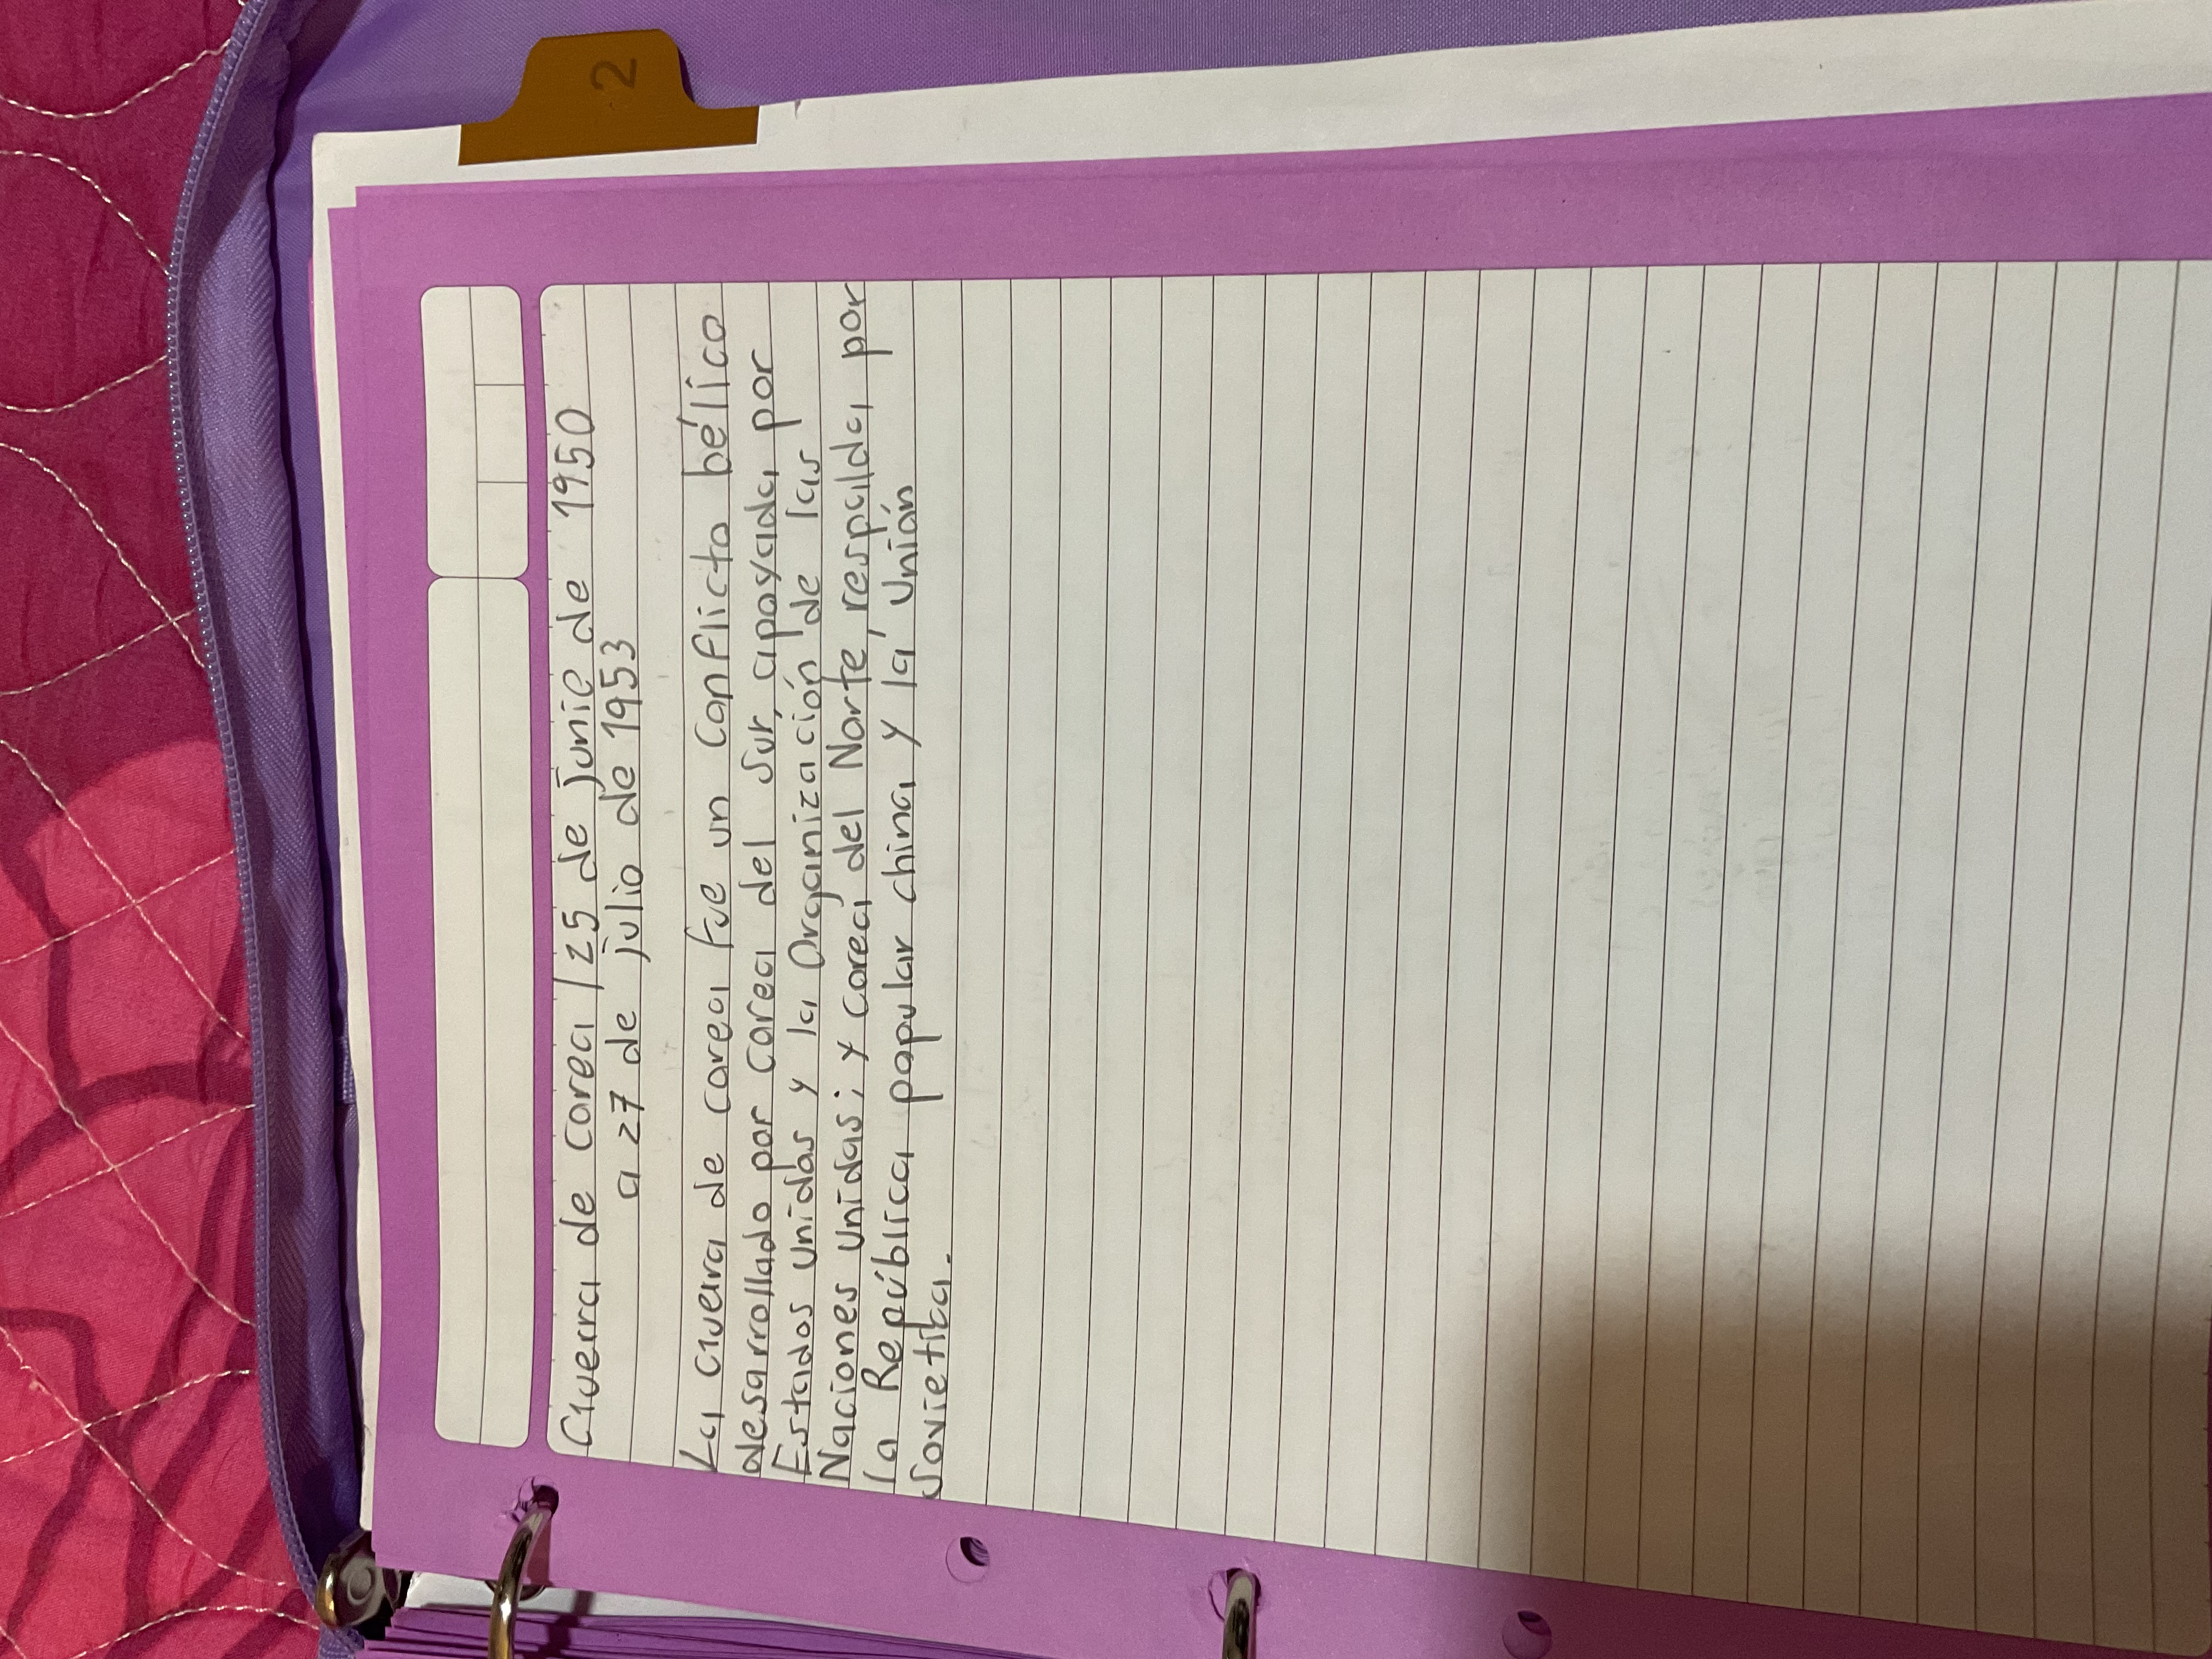 2
Guerra de corea / 25 de junio de 1950
a 27 de julio de 1953
La Guerra de corea fue un Conflicto bélico
desarrollado por corea del sur, apoyada por
Estados unidos y la Organización de las
Naciones unidas; y corea del Norte, respalda por
la República popular china y la Unión
sovietica.